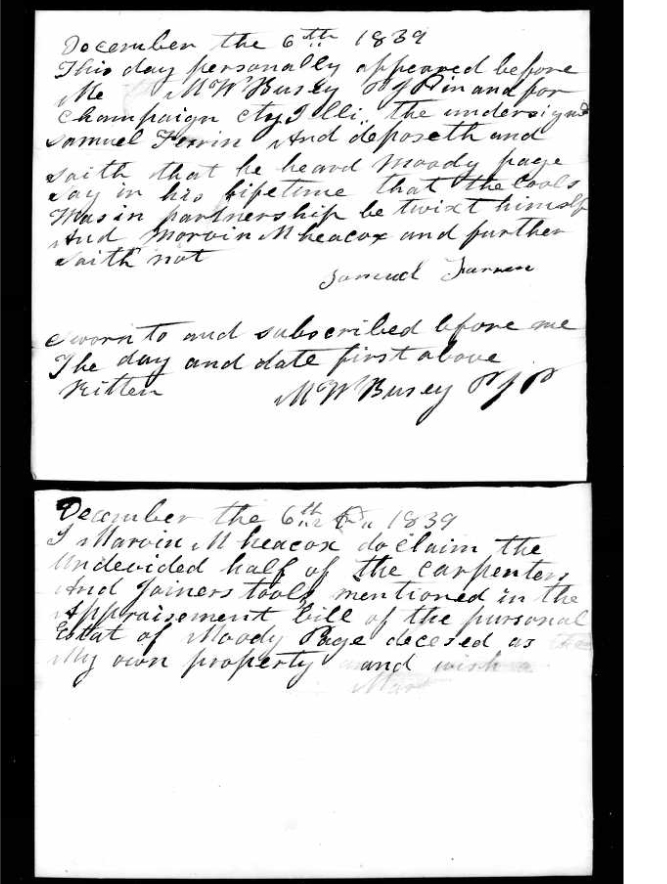 December the 6th 1839
This day personally appeared before
Me M W Busey P J P in and for
Champaign cty Illi, the undersigned
Samuel Ferrin And deposeth and
saith that he heard Moody page
say in his lifetime that the tools
Was in partnership be twixt himself
And Marvin M heacox and further
saith not
Samuel
Sworn to and subscribed before me
The day and date first above
Ritten M W Busey P J P
December the 6th 1839
I Marvin M heacox do Claim the
Undevided half of the Carpenters
And Joiners tools mentioned in the
Appraisement bill of the pursonal
Estat of Moody Page decesed as
My own property and wish